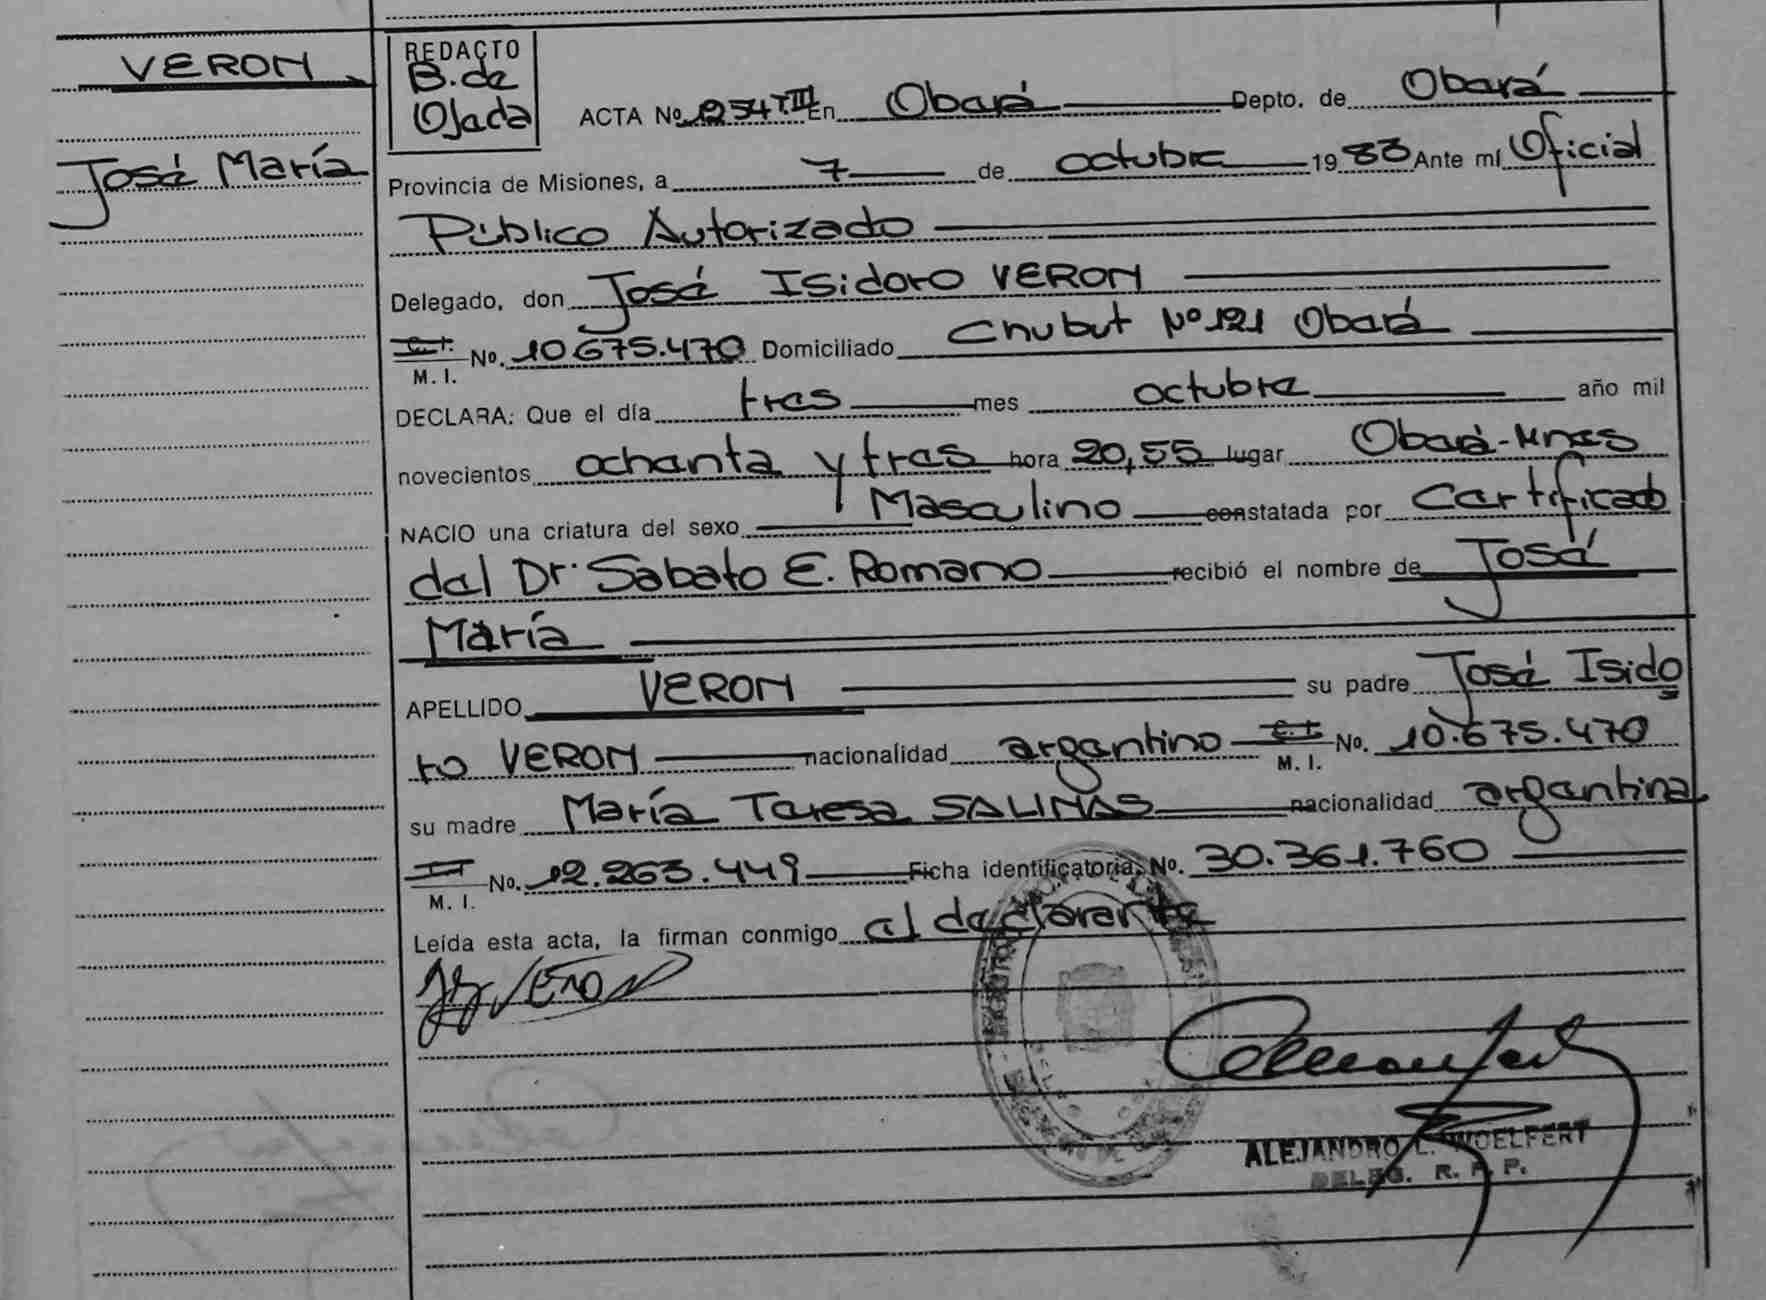 VERON
José María
REDACTO
B. de
Ojeda
ACTA No. 254 TIII En Oberá Depto. de Oberá
Provincia de Misiones, a 7 de octubre 1983 Ante mí Oficial
Público Autorizado
Delegado, don José Isidoro VERON
C.I. No. 10.675.470 Domiciliado Chubut Nº 121 Oberá
M. I.
DECLARA: Que el día tres mes octubre año mil
novecientos ochenta y tres hora 20,55 lugar Oberá-Mnes
NACIO una criatura del sexo Masculino constatada por Certificado
del Dr. Sabato E. Romano recibió el nombre de José
María
APELLIDO VERON su padre José Isido
ro VERON nacionalidad argentino C.I. No. 10.675.470
M. I.
su madre María Teresa SALINAS nacionalidad argentina
No. 12.263.449 Ficha identificatoria No. 30.361.760
M. I.
Leída esta acta, la firman conmigo el declarante
VERON
ALEJANDRO L. WOELFERT
DELEG. R. P. P.